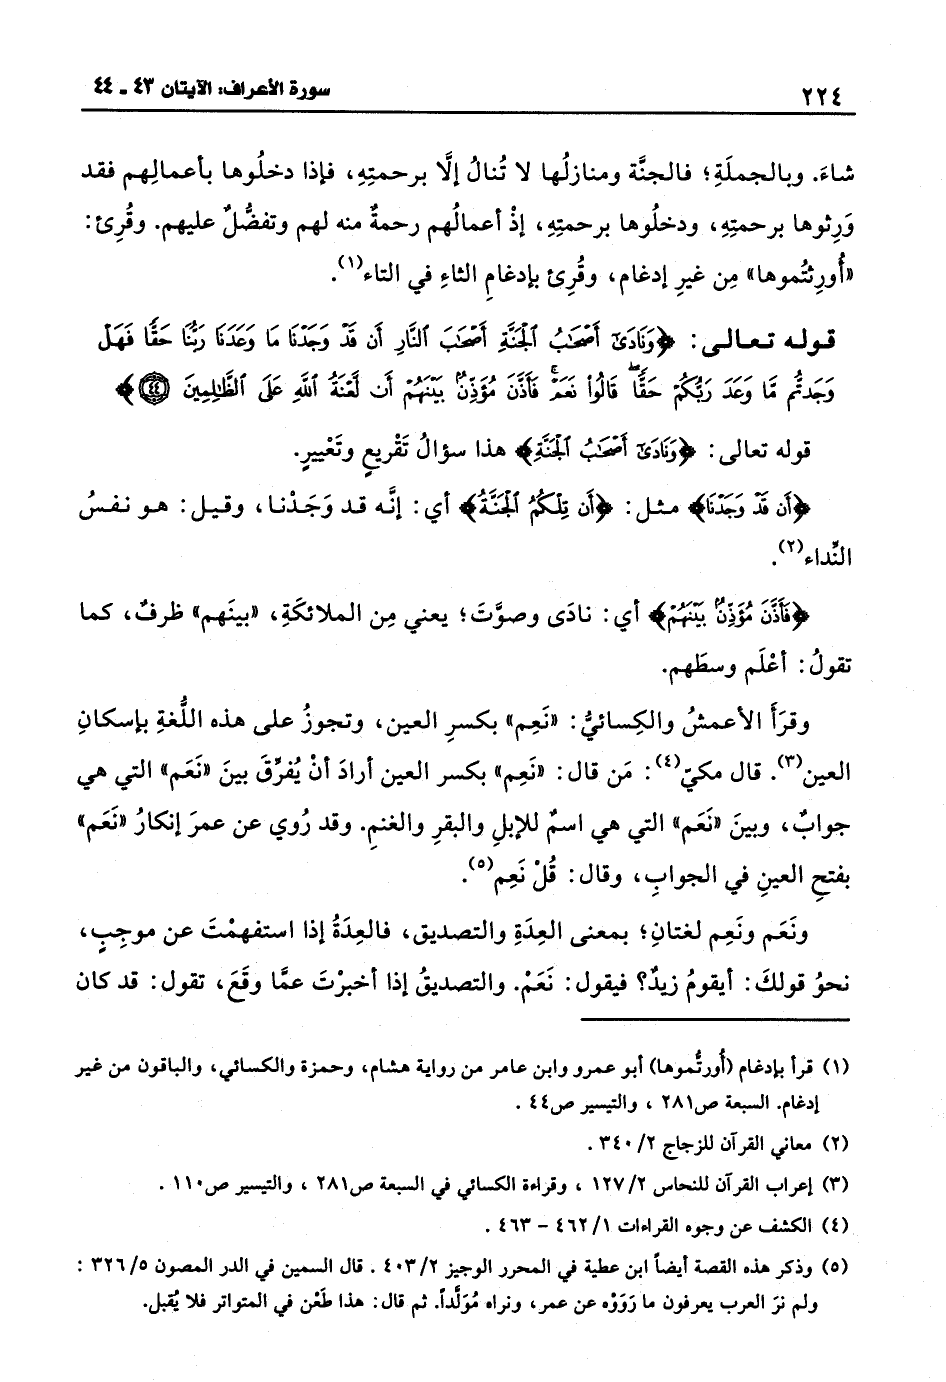 ٢٢٤ سورة الأعراف: الآيتان ٤٣ ـ ٤٤
شاءَ. وبالجملَةِ؛ فالجنَّة ومنازلُها لا تُنالُ إلَّا برحمتِهِ، فإذا دخلُوها بأعمالِهم فقد
وَرِثوها برحمتِهِ، ودخلُوها برحمتِهِ، إذْ أعمالُهم رحمةٌ منه لهم وتفضُّلٌ عليهم. وقُرِئ:
«أُورِثتُموها» مِن غيرِ إدغام، وقُرِئ بإدغامِ الثاءِ في التاء(١).
قوله تعالى: ﴿وَنَادَىٰٓ أَصۡحَٰبُ ٱلۡجَنَّةِ أَصۡحَٰبَ ٱلنَّارِ أَن قَدۡ وَجَدۡنَا مَا وَعَدَنَا رَبُّنَا حَقّٗا فَهَلۡ
وَجَدتُّم مَّا وَعَدَ رَبُّكُمۡ حَقّٗاۖ قَالُواْ نَعَمۡۚ فَأَذَّنَ مُؤَذِّنُۢ بَيۡنَهُمۡ أَن لَّعۡنَةُ ٱللَّهِ عَلَى ٱلظَّٰلِمِينَ ٤٤﴾
قوله تعالى: ﴿وَنَادَىٰٓ أَصۡحَٰبُ ٱلۡجَنَّةِ﴾ هذا سؤالُ تَقْريعٍ وتَعْييرٍ.
﴿أَن قَدۡ وَجَدۡنَا﴾ مثل: ﴿أَن تِلۡكُمُ ٱلۡجَنَّةُ﴾ أي: إنَّه قد وَجَدْنا، وقيل: هو نفسُ
النِّداء(٢).
﴿فَأَذَّنَ مُؤَذِّنُۢ بَيۡنَهُمۡ﴾ أي: نادَى وصوَّتَ؛ يعني مِن الملائكَةِ، «بينَهم» ظرفٌ، كما
تقولُ: أعْلَم وسطَهم.
وقرَأَ الأعمشُ والكِسائيُّ: «نَعِم» بكسرِ العين، وتجوزُ على هذه اللُّغةِ بإسكانِ
العين(٣). قال مكيّ(٤): مَن قال: «نَعِم» بكسر العين أرادَ أنْ يُفرِّقَ بينَ «نَعَم» التي هي
جوابٌ، وبينَ «نَعَم» التي هي اسمٌ للإبلِ والبقرِ والغنمِ. وقد رُوي عن عمرَ إنكارُ «نَعَم»
بفتحِ العينِ في الجوابِ، وقال: قُلْ نَعِم(٥).
ونَعَم ونَعِم لغتانِ؛ بمعنى العِدَةِ والتصديق، فالعِدَةُ إذا استفهمْتَ عن موجِبٍ،
نحوُ قولكَ: أيقومُ زيدٌ؟ فيقول: نَعَمْ. والتصديقُ إذا أخبرْتَ عمَّا وقَعَ، تقول: قد كان
(١) قرأ بإدغام (أُورتُّموها) أبو عمرو وابن عامر من رواية هشام، وحمزة والكسائي، والباقون من غير
إدغام. السبعة ص٢٨١ ، والتيسير ص٤٤ .
(٢) معاني القرآن للزجاج ٣٤٠/٢ .
(٣) إعراب القرآن للنحاس ١٢٧/٢ ، وقراءة الكسائي في السبعة ص٢٨١ ، والتيسير ص١١٠ .
(٤) الكشف عن وجوه القراءات ٤٦٢/١ - ٤٦٣ .
(٥) وذكر هذه القصة أيضاً ابن عطية في المحرر الوجيز ٤٠٣/٢ . قال السمين في الدر المصون ٣٢٦/٥ :
ولم نرَ العرب يعرفون ما رَوَوْه عن عمر، ونراه مُوَلَّداً. ثم قال: هذا طَعْن في المتواتر فلا يُقبل.